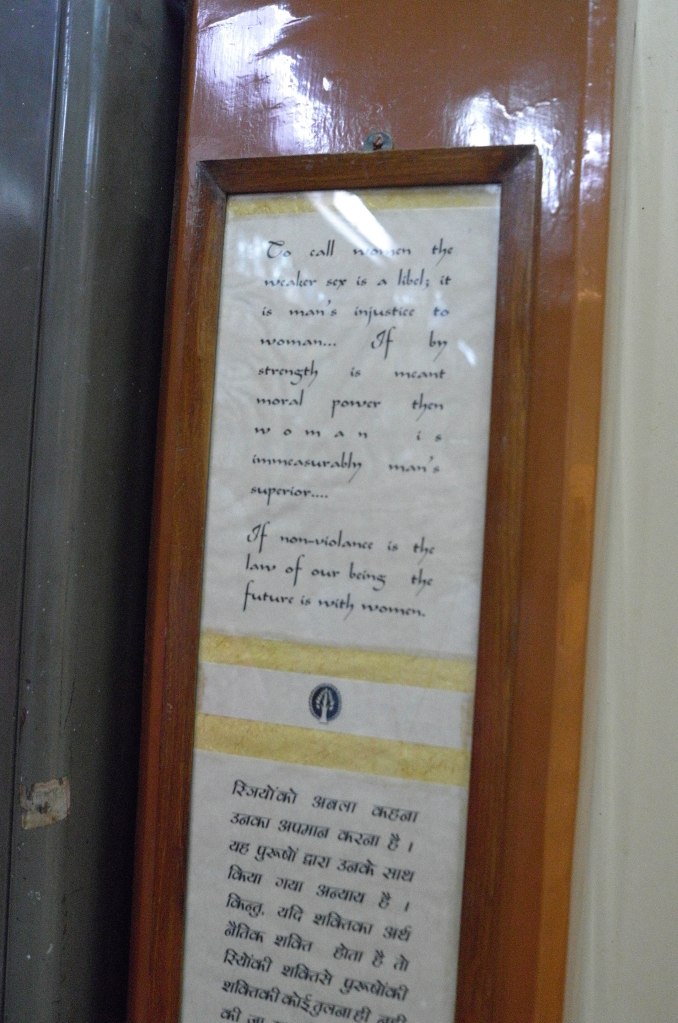 To call women the
weaker sex is a libel; it
is man's injustice to
woman... If by
strength is meant
moral power then
woman is
immeasurably man's
superior....
If non-violance is the
law of our being the
future is with women.
स्त्रियोंको अबला कहना
उनका अपमान करना है ।
यह पुरूषों द्वारा उनके साथ
किया गया अन्याय है ।
किन्तु, यदि शक्तिका अर्थ
नैतिक शक्ति होता है तो
स्त्रियोंकी शक्तिसे पुरूषोंकी
शक्तिकी कोई तुलना ही नहीं
की जा